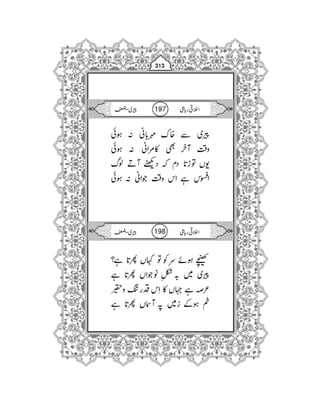 313
اخلاقی رباعی 197 پیری۔ضعف
پیری سے خاک مہربانی نہ ہوئی
وقت آخر بھی کامرانی نہ ہوئی
یوں توڑتا دم کہ دیکھنے آتے لوگ
افسوس ہے اس وقت جوانی نہ ہوئی
اخلاقی رباعی 198 پیری۔ضعف
کھینچے ہوئے سر کو تو کہاں پھرتا ہے؟
پیری میں بہ شکلِ نوجواں پھرتا ہے
عرصہ ہے جہاں کا اِس قدر تنگ و حقیر
خم ہوکے زمیں پہ آسماں پھرتا ہے